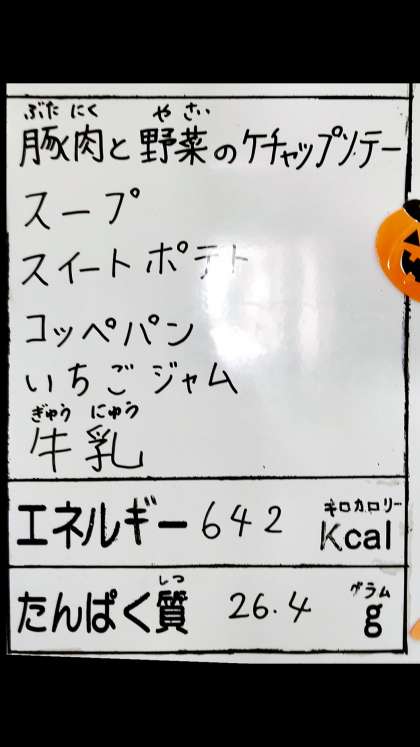 ぶた にく や さい
豚肉と野菜のケチャップソテー
スープ
スイートポテト
コッペパン
いちごジャム
ぎゅう にゅう
牛乳
キロカロリー
エネルギー 642 Kcal
しつ グラム
たんぱく質 26.4 g